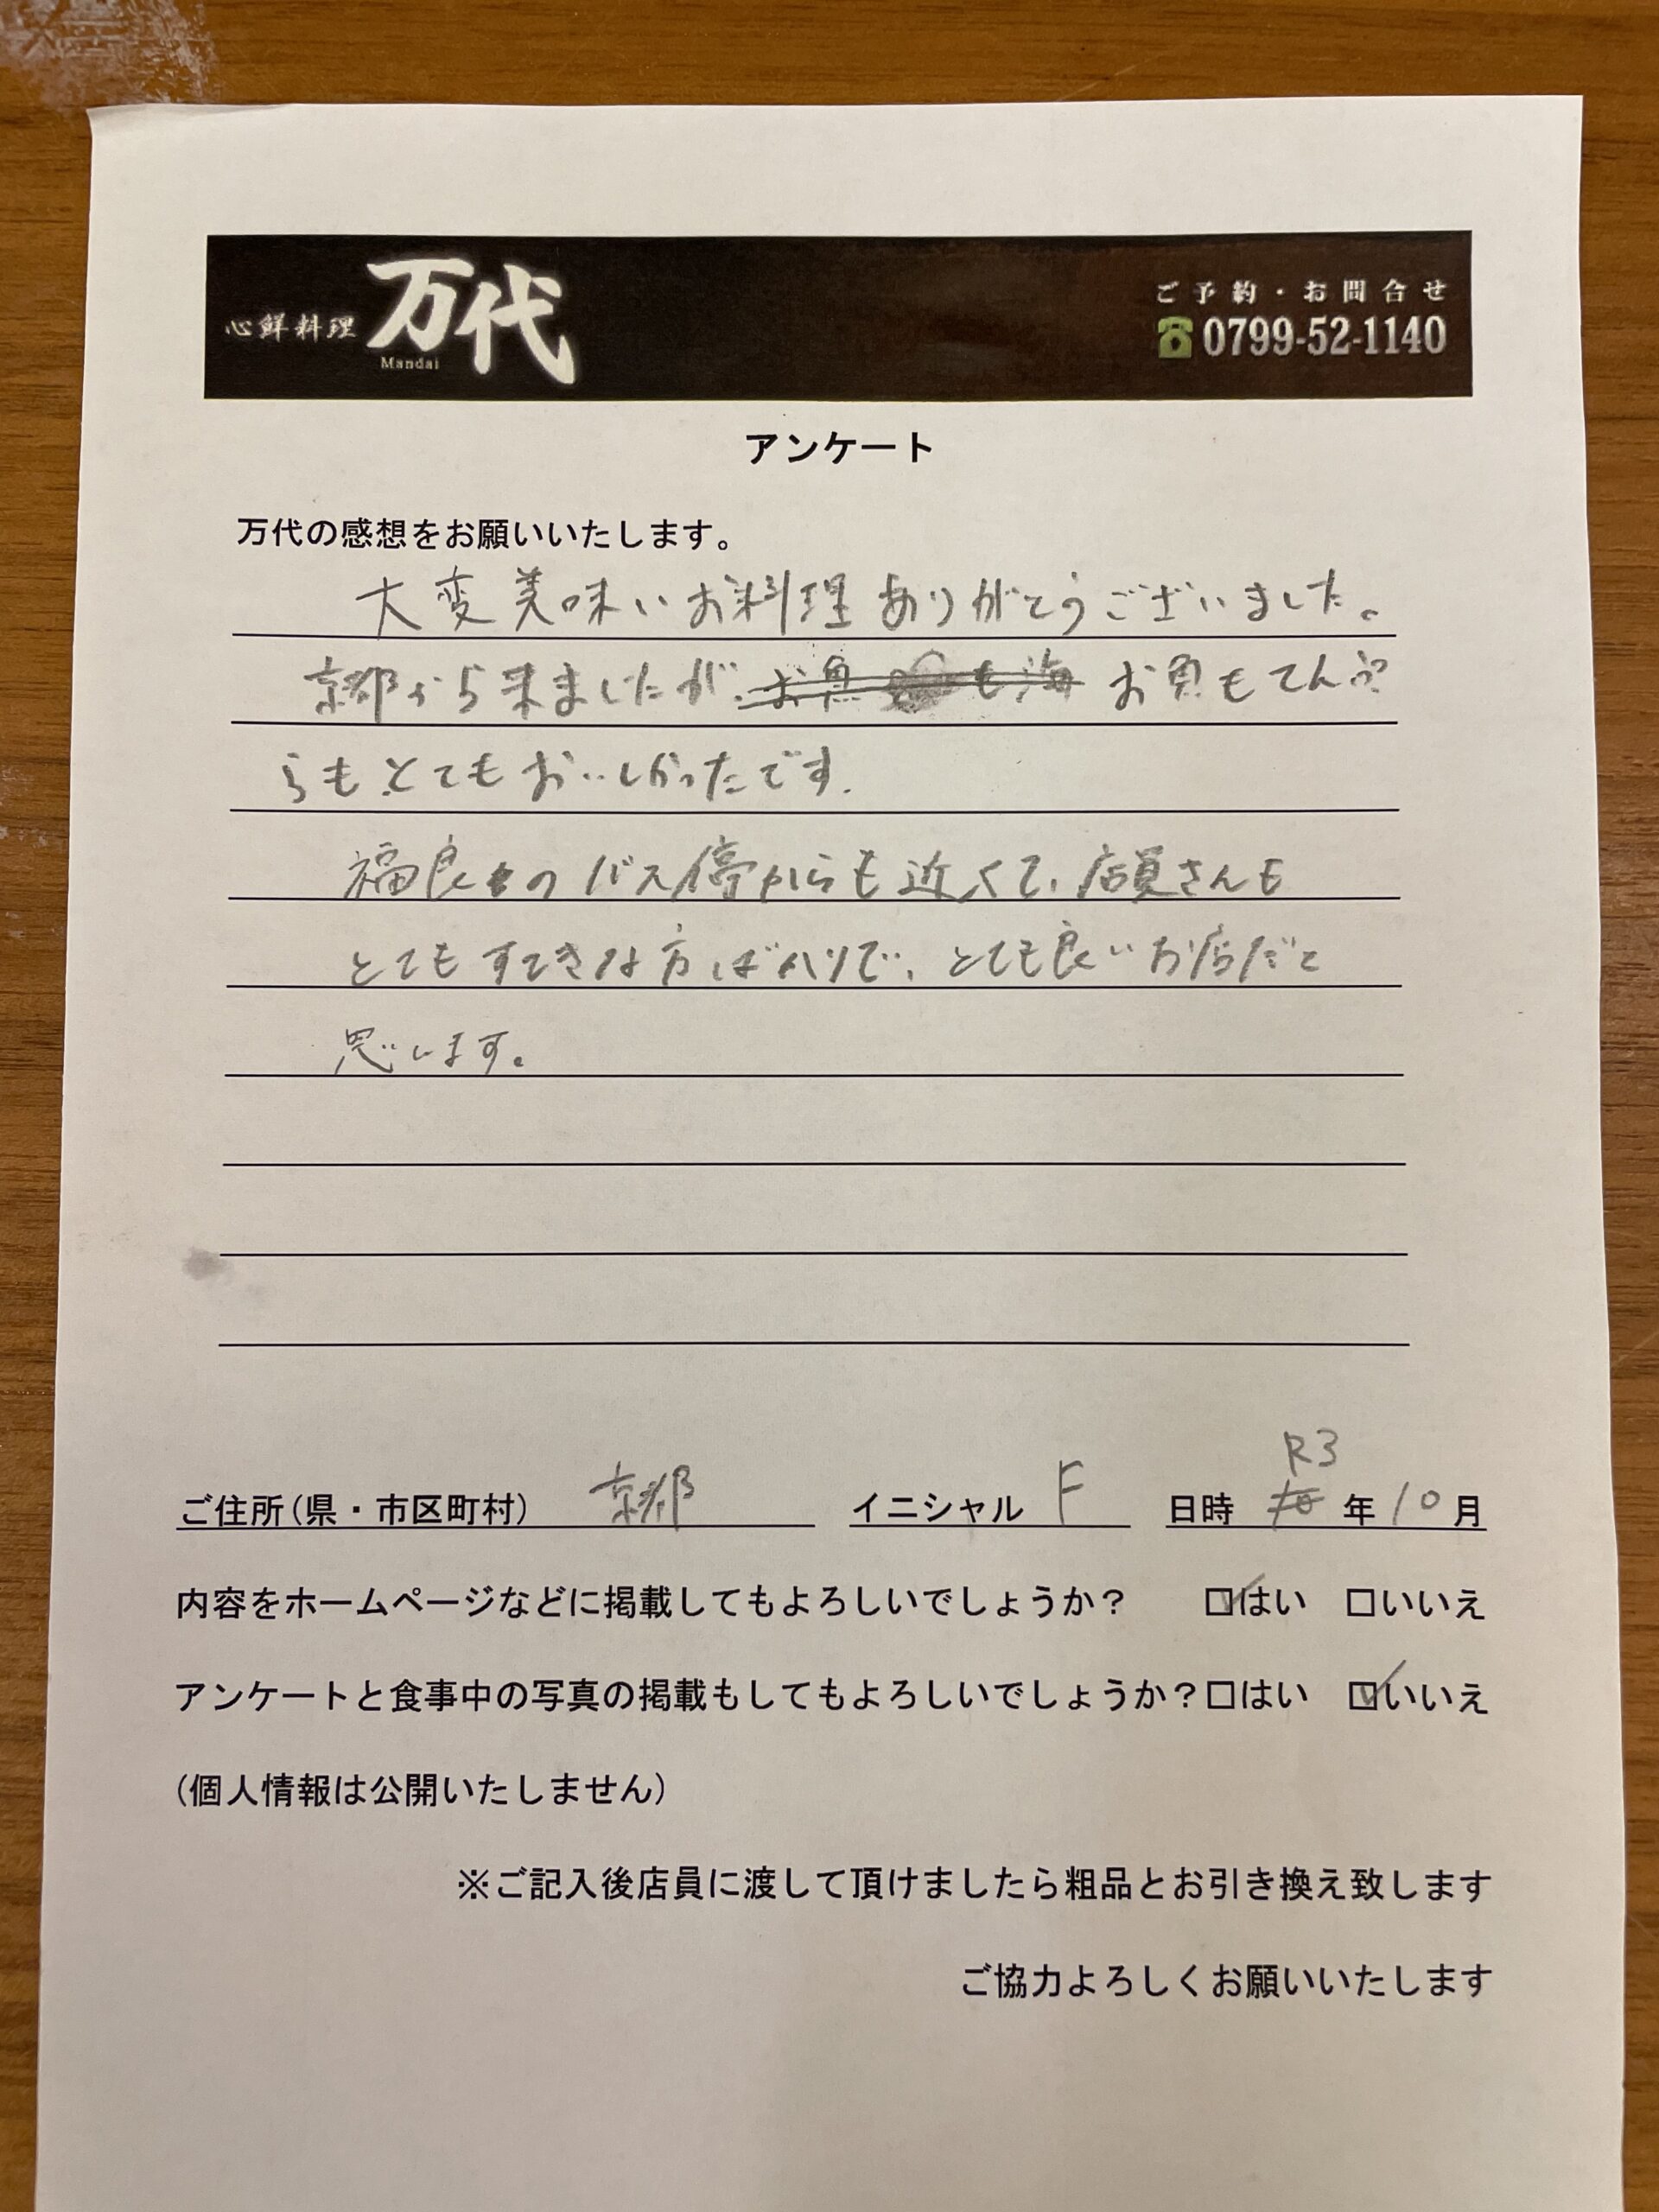 心鮮料理 万代
Mandai
ご予約・お問合せ
0799-52-1140
アンケート
万代の感想をお願いいたします。
大変美味いお料理ありがとうございました。
京都から来ましたが、お魚も海 お魚もてんぷ
らもとてもおいしかったです.
福良のバス停からも近くて、店員さんも
とてもすてきな方ばかりで、とても良いお店だと
思います。
ご住所(県・市区町村) 京都 イニシャル F 日時 R3 年 10 月
内容をホームページなどに掲載してもよろしいでしょうか？ ☑はい □いいえ
アンケートと食事中の写真の掲載もしてもよろしいでしょうか？□はい ☑いいえ
(個人情報は公開いたしません)
※ご記入後店員に渡して頂けましたら粗品とお引き換え致します
ご協力よろしくお願いいたします